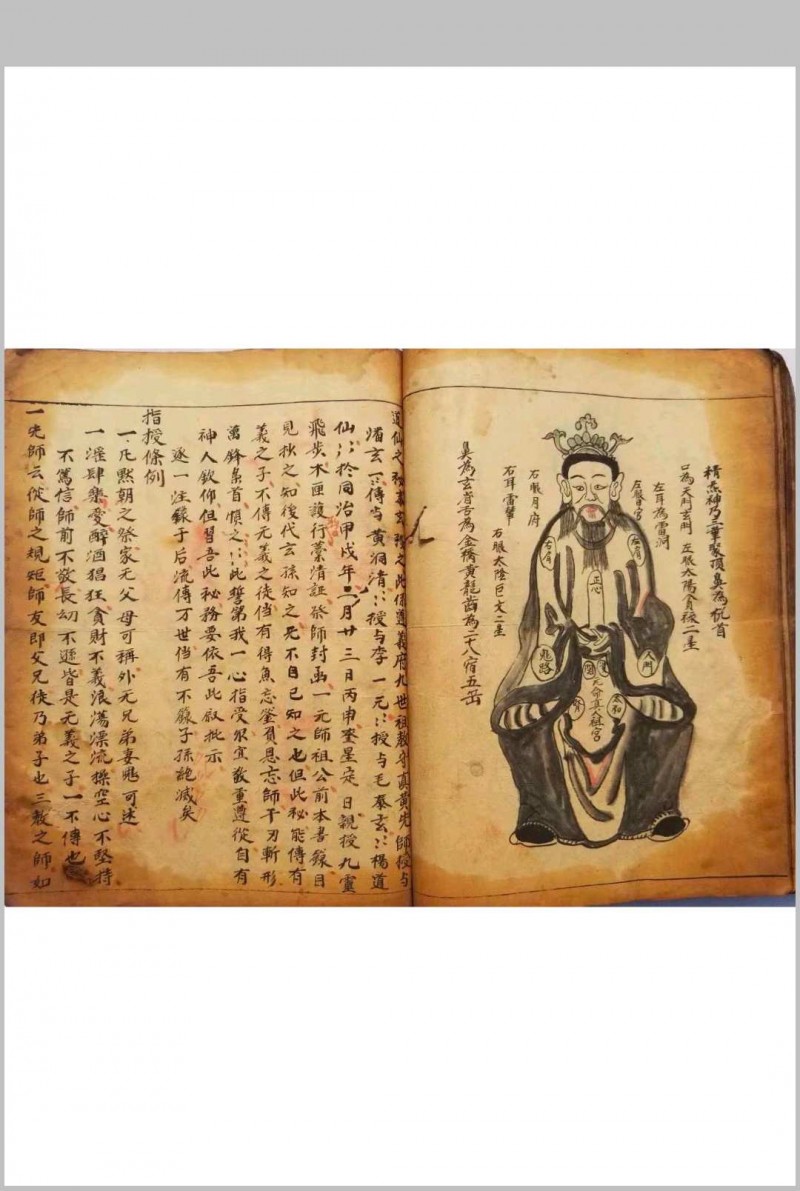 精炁神乃三華聚頂鼻為杭首
口為天門玄門 左眼太陽貪狼二星
左耳為雷洞
左眼日宮
左肩
右肩
正心
人門
鬼路
腎
元命真人祖宮
石眼月府
石耳雷聲
石眼太陰巨文二星
鼻為玄膺舌為金橋黃龍齒為二十八宿五岳
道仙之此係遵義府九世祖教守真黃先師授与
湄玄〻傳与黃洞清〻授与李一元〻授与毛奉玄〻楊道
仙〻於同治甲戌年二月廿三日丙申奎星定日親授九靈
飛步木匣護行蒙清証祭師封函一元師祖公前本書錄目
見抄之知後代玄孫知之死不目已知之也但此秘能傳有
義之子不傳无義之徒倘有得魚忘筌負恩忘師千刃斬形
萬鋒梟首慎之〻此誓弟我一心指受尔宜敬重遵從自有
神人欽仰但習吾此秘務要依吾此叙批示
逐一注錄于后流傳万世倘有不籙子孫絕滅矣
指授條例
一凡點朝之祭家无父母可稱外无兄弟妻鬼可迷
一滛肆樂受醉酒猖狂貪財不義浪蕩漂流操空心不堅持
不篤信師前不敬長幼不遜皆是无義之子一不傳也
一先師云從師之規矩師友即父兄徒乃弟子也三教之師如